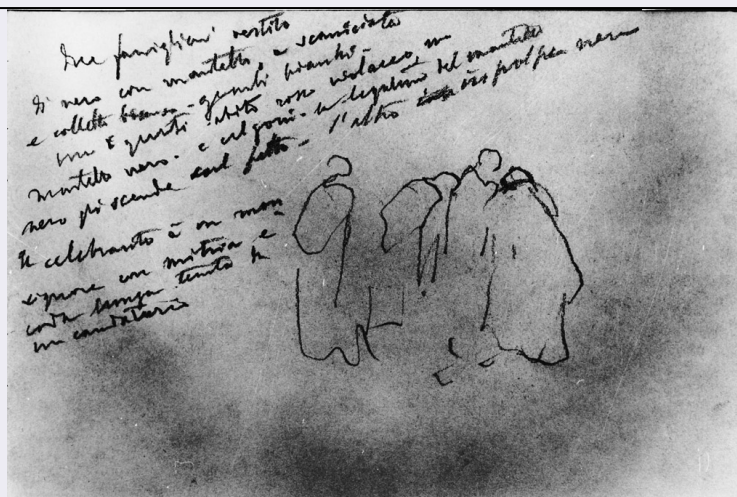 Due famigliari vestiti
di nero con mantello, a scamiciata
e colletto bianco - guanti bianchi -
uno è quasi abito rosso violaceo
mantello nero - e calzoni - un legaccio del mantello
nero gli scende sul petto - l'altro in polpe nere
Il celebrante è un mon
signore con mitria e
coda lunga tenuta da
un caudatario